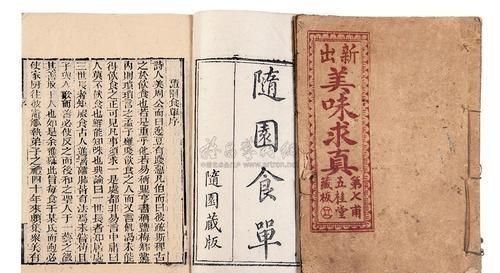 新出
美味求真
第七甫
五桂堂
藏板
隨園食單
隨園藏版
隨園食單序
詩人美周公而曰籩豆有踐惡凡伯而曰彼疏斯稗古
之於飲食也若是重乎他若易稱鼎烹書稱鹽梅鄉黨
內則瑣瑣言之孟子雖賤飲食之人而又言飢渴未能
得飲食之正可見凡事須求一是處都非易言中庸曰
人莫不飲食也鮮能知味也典論曰一世長者知居處
三世長者知服食古人進鬐離肺皆有法焉未嘗苟且
子與人歌而善必使反之而後和之聖人于一藝之微
其善取於人也如是余雅慕此旨每食於某氏而飽必
使家廚往彼灶觚執弟子之禮四十年來頗集眾美有